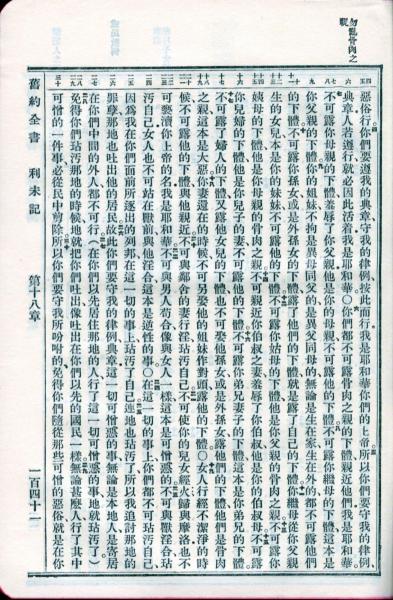 勿露骨肉之
親
惡俗行你們要遵我的典章守我的律例按此而行我是耶和華你們的上帝所以你們要守我的律例
典章人若遵行就必因此活着我是耶和華〇你們都不可露骨肉之親的下體親近他們我是耶和華
不可露你母親的下體羞辱了你父親他是你的母親不可露他的下體不可露你繼母的下體這本是
你父親的下體你的姐妹不拘是異母同父的是異父同母的無論是生在家生在外的都不可露他們
的下體不可露你孫女或是外孫女的下體露了他們的下體就是露了自己的下體你繼母從你父親
生的女兒本是你的妹妹不可露他的下體不可露你姑母的下體他是你父親的骨肉之親不可露你
姨母的下體他是你母親的骨肉之親不可親近你伯叔之妻羞辱了你伯叔他是你的伯叔母不可露
你兒婦的下體他是你兒子的妻不可露他的下體不可露你弟兄妻子的下體這本是你弟兄的下體
不可露了婦人的下體又露他女兒的下體也不可娶他孫女或是外孫女露他們的下體他們是骨肉
之親這本是大惡你妻還在的時候不可另娶他的姐妹作對頭露他的下體〇女人行經不潔淨的時
候不可露他的下體與他親近不可與鄰舍的妻行淫玷污自己不可使你的兒女經火歸與摩洛也不
可褻瀆你上帝的名我是耶和華不可與男人苟合像與女人一樣這本是可憎惡的不可與獸淫合玷
污自己女人也不可站在獸前與他淫合這本是逆性的事〇在這一切的事上你們都不可玷污自己
因爲我在你們面前所逐出的列邦在這一切的事上玷污了自己連地也玷污了所以我追討那地的
罪孽那地也吐出他的居民故此你們要守我的律例典章這一切可憎惡的事無論是本地人是寄居
在你們中間的外人都不可行(在你們以先居住那地的人行了這一切可憎惡的事地就玷污了)
免得你們玷污那地的時候地就把你們吐出像吐出在你們以先的國民一樣無論甚麼人行了其中
可憎的一件事必從民中剪除所以你們要守我所吩咐的免得你們隨從那些可憎的惡俗就是在你
舊約全書 利未記 第十八章 一百四十一